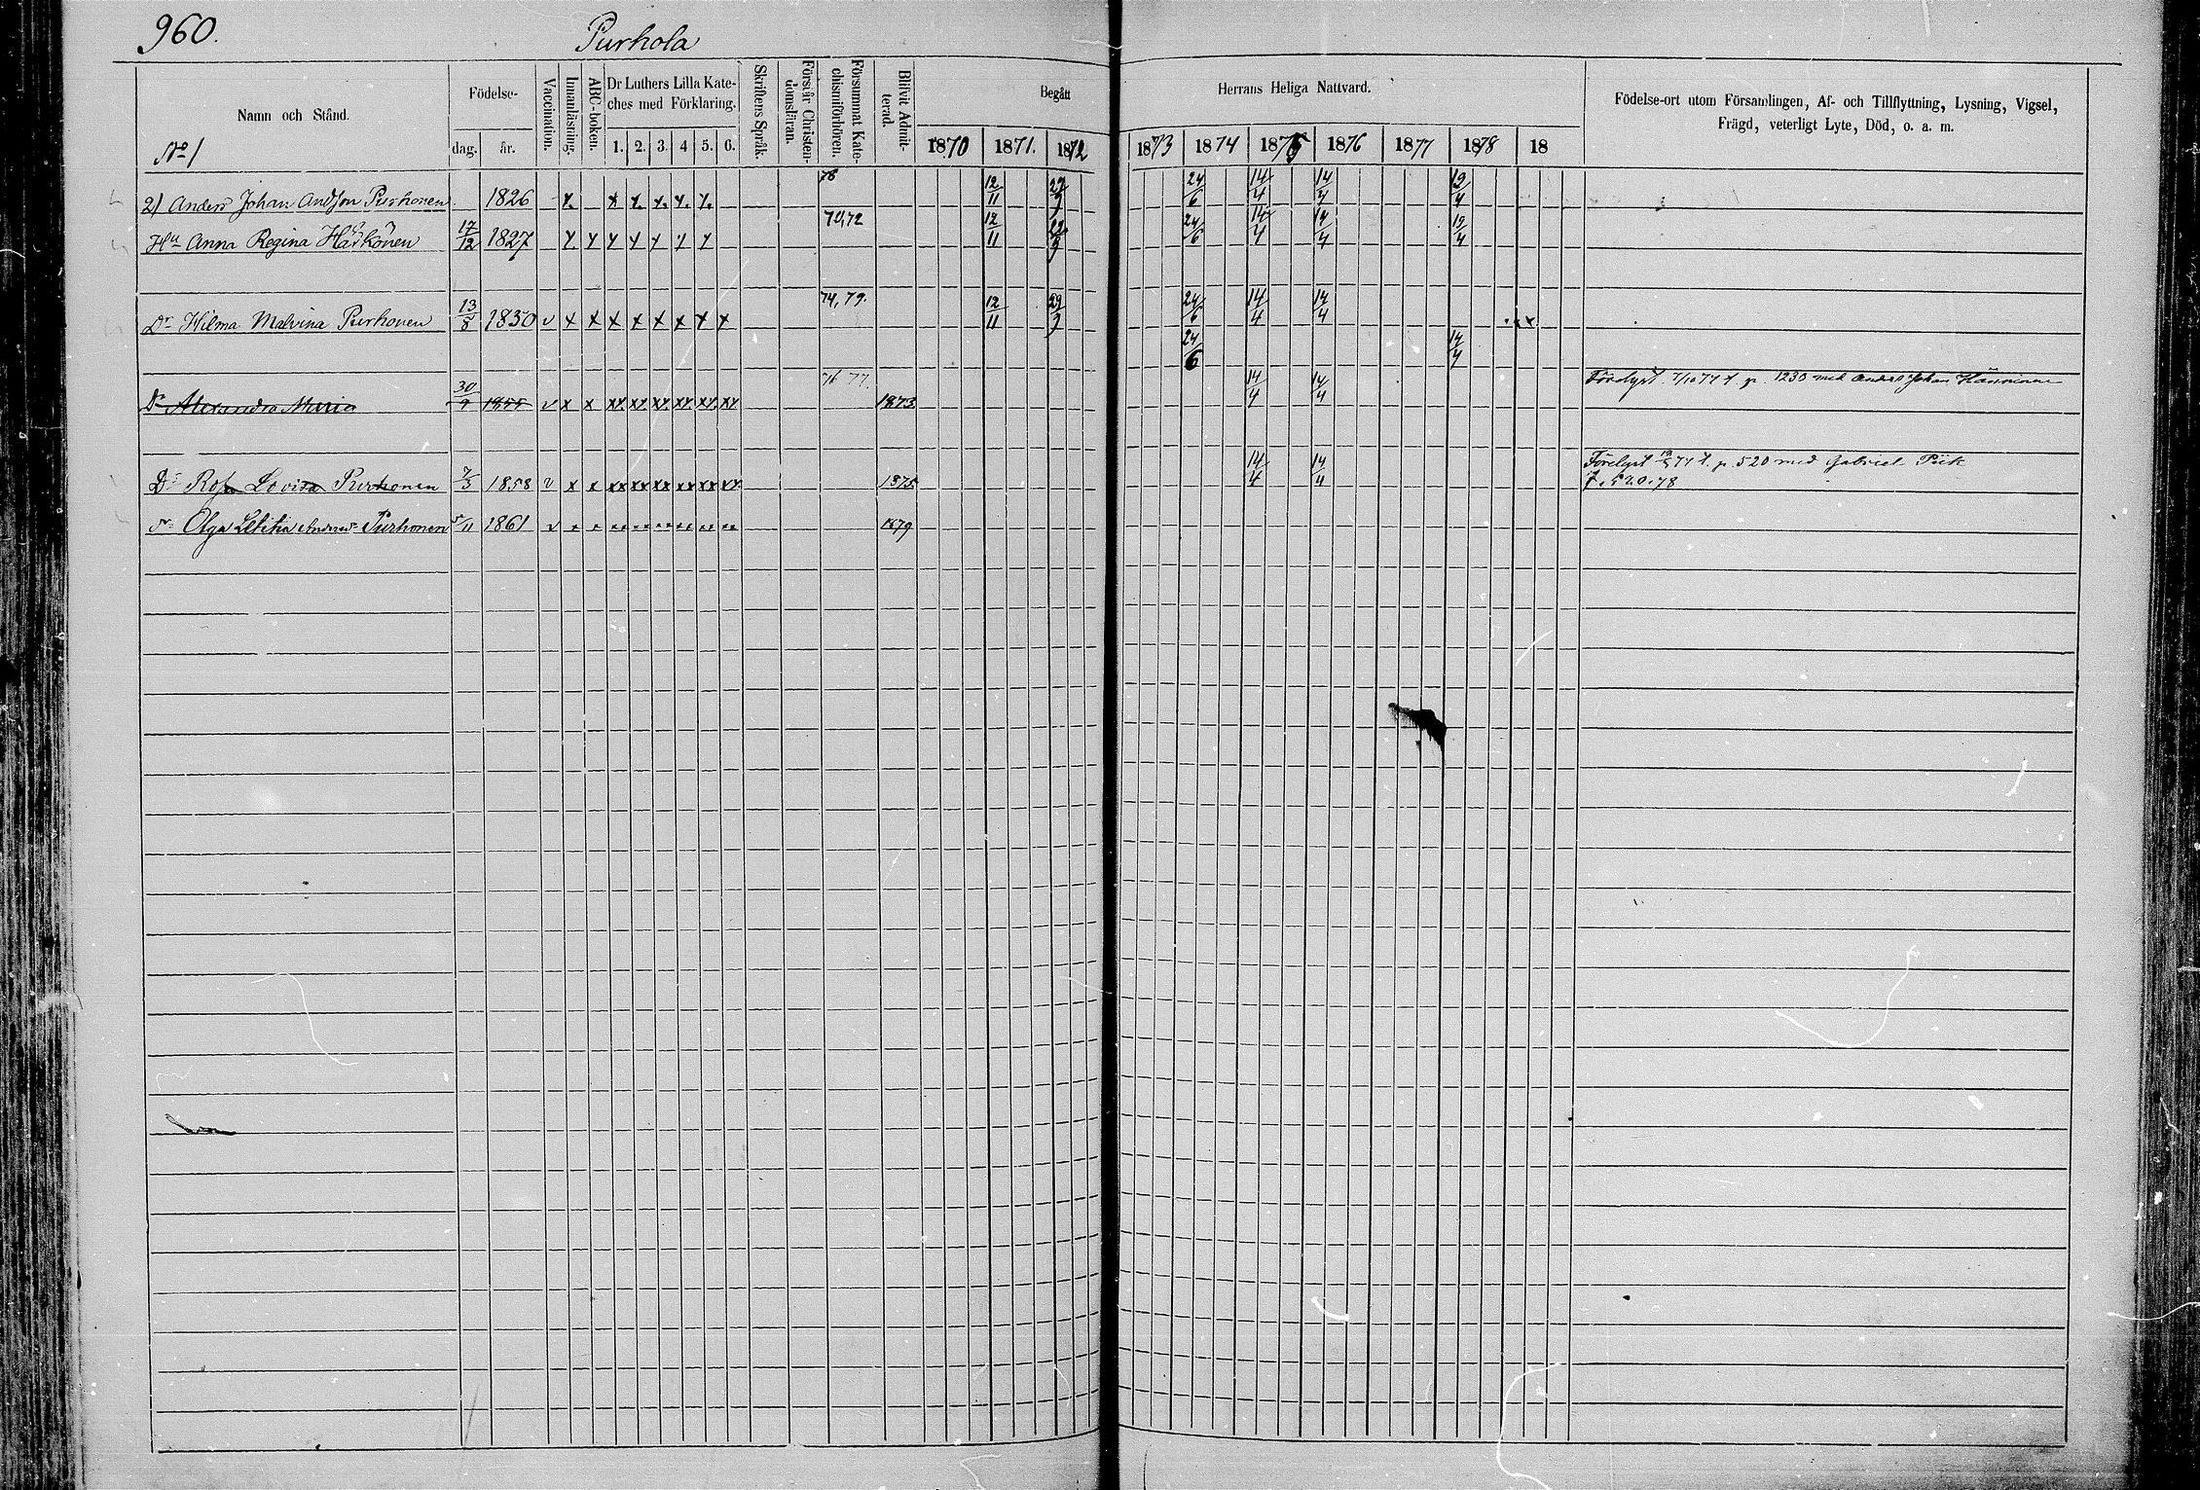 960.
Purhola
Namn och Stånd.
Födelse-
dag.
år.
Vaccination.
Innanläsning.
ABC-boken.
Dr Luthers Lilla Kate-
ches med Förklaring.
1. 2. 3. 4 5. 6.
Skriftens Språk.
Förstår Christen-
domsläran.
Försummat Kate-
chismiförhören.
Blifvit Admit-
terad.
Begått
Herrans Heliga Nattvard.
1870 1871. 1872 1873 1874 1875 1876 1877 1878 18
Födelse-ort utom Församlingen, Af- och Tillflyttning, Lysning, Vigsel,
Frägd, veterligt Lyte, Död, o. a. m.
No 1
2) Anders Johan Andsson Purhonen 1826 x. x x. x. x. x. 12/11 24/6 14/4 14/4 19/4
Hu Anna Regina Härkönen 17/12 1827 x x x x x x x 70,72 12/11 29/9 24/6 14/4 14/4 19/4
Dr Hilma Malvina Purhonen 13/8 1850 v x x x x x x x x 74, 79. 12/11 29/9 24/6 14/4 14/4
24/6 14/4
Dr Alexandra Maria 30/9 1855 v x x xx. xx. xx. xx. xx. xx 76 77. 1873. 14/4 14/4 1230 med Anders Johan
Dr Rosa Lovisa Purhonen 7/3 1858 v x x xx xx xx xx xx xx 1875 14/4 14/4 p. 520 med Gabriel Piik
Dr Olga Letitia Purhonen 5/11 1861 v 1879